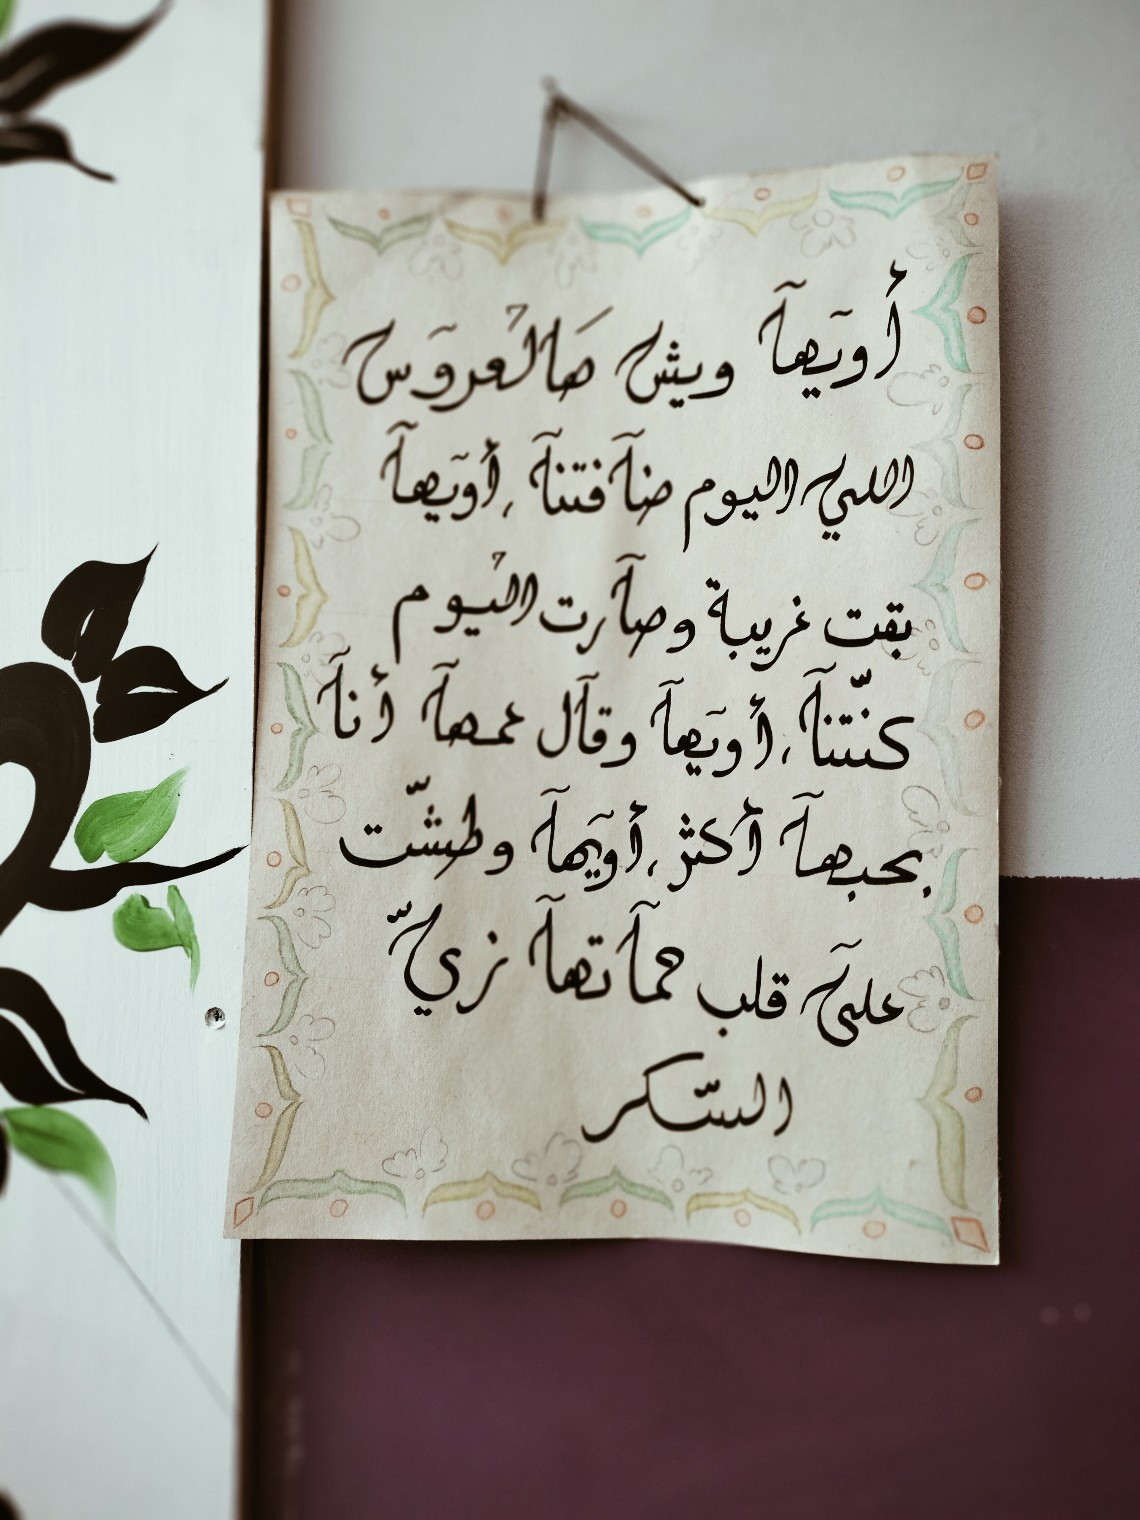 أويها ويش هالعروس
اللي اليوم ضافتنا، أويها
بقت غريبة وصارت اليوم
كنّتنا، أويها وقال عمها أنا
بحبها أكثر، أويها وطشّت
على قلب حماتها زيّ
السّكر